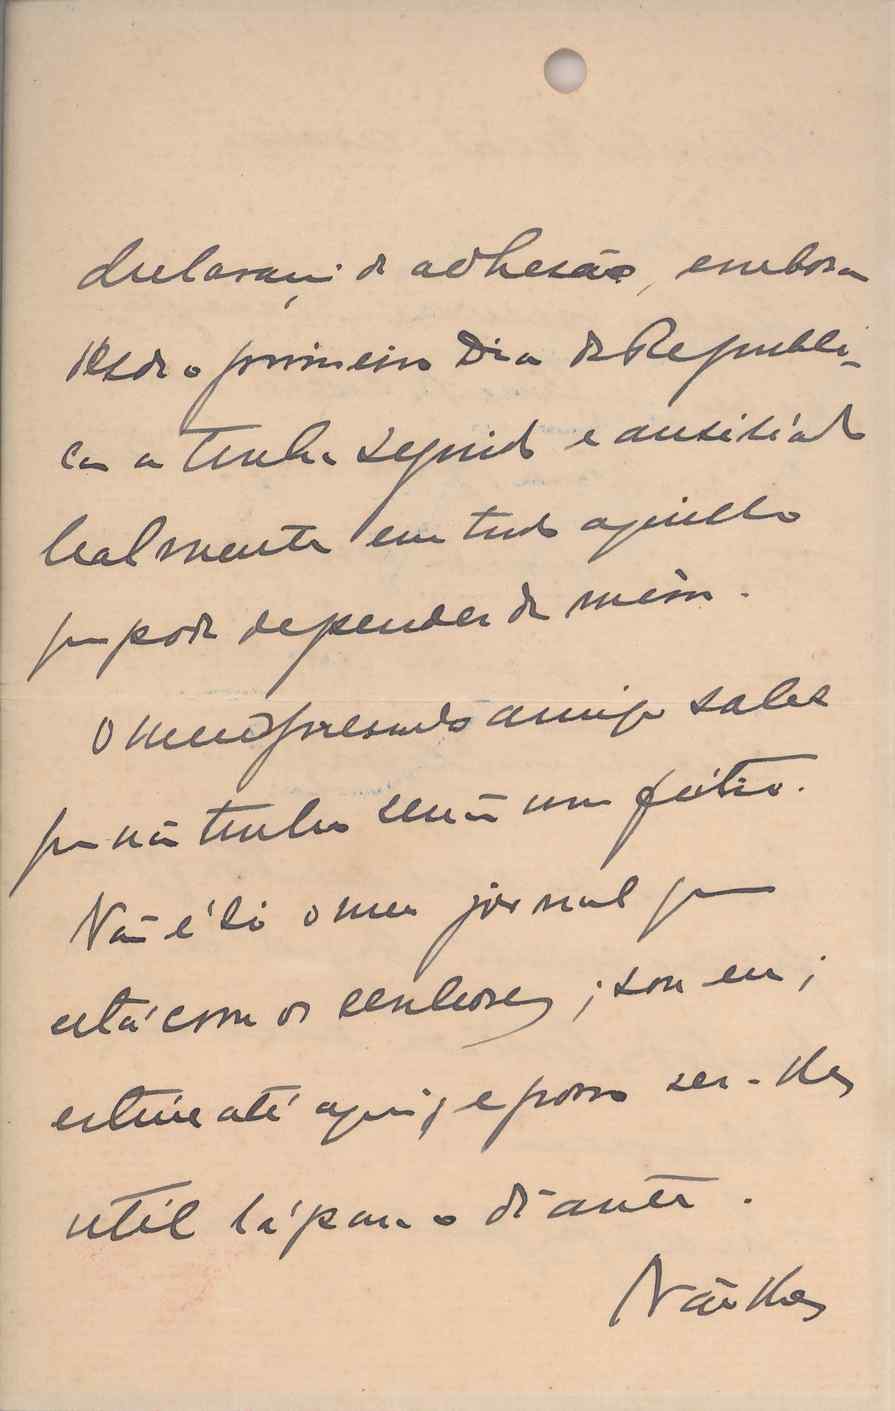 declaração de adhesão, embora
desde o primeiro dia da Republi-
ca a tenha seguido e auxiliado
lealmente em tudo aquillo
que pode depender de mim.
O meu presado amigo sabe
que não tenho senão um feitio.
Não é só o meu jornal que
está com os senhores; sou eu;
estive até aqui, e posso ser-lhes
util lá para o diante.
Não lhes